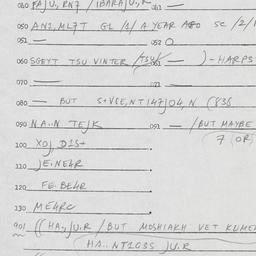 040 PAJU,RN7 / IBARAJU,R 041 —
050 AN2,ML7T GL /1/ A YEAR AGO SC /2/1
051 — 052 O
060 SGEYT TSU VINTER /TSU/ — )-HARPS
070 — 071 —
080 — BUT S+VEE,NT 147J04,N (838
090 NA..N TEJK 091 — /BUT MAYBE
7 (OR)
100 XOJ D1S+
110 JE.NE4R
120 FE.BE4R
130 ME4RC
901 ((HA,,JU.R / BUT MOSHIAKH VET KUMEN
HA..NT103S JU.R